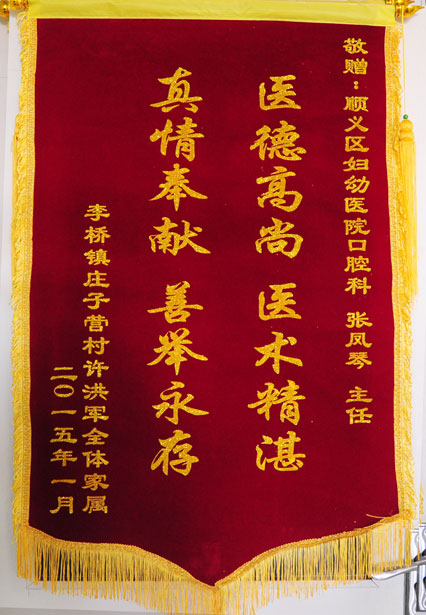 敬赠：顺义区妇幼医院口腔科 张凤琴 主任
医德高尚 医术精湛
真情奉献 善举永存
李桥镇庄子营村许洪军全体家属
二〇一五年一月